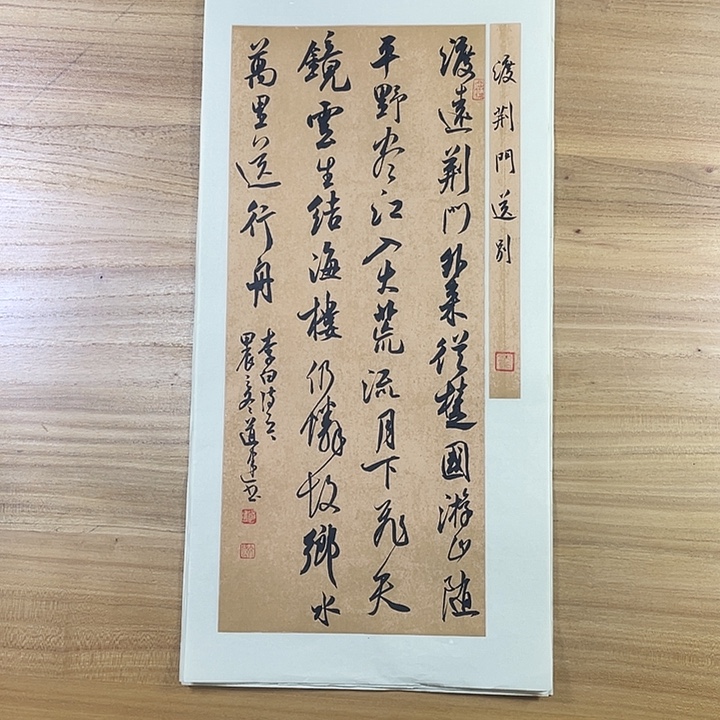 渡荆門送别
渡遠荆門外来從楚國游山随
平野尽江入大荒流月下飛天
鏡雲生結海樓仍憐故鄉水
萬里送行舟
李白诗
道書